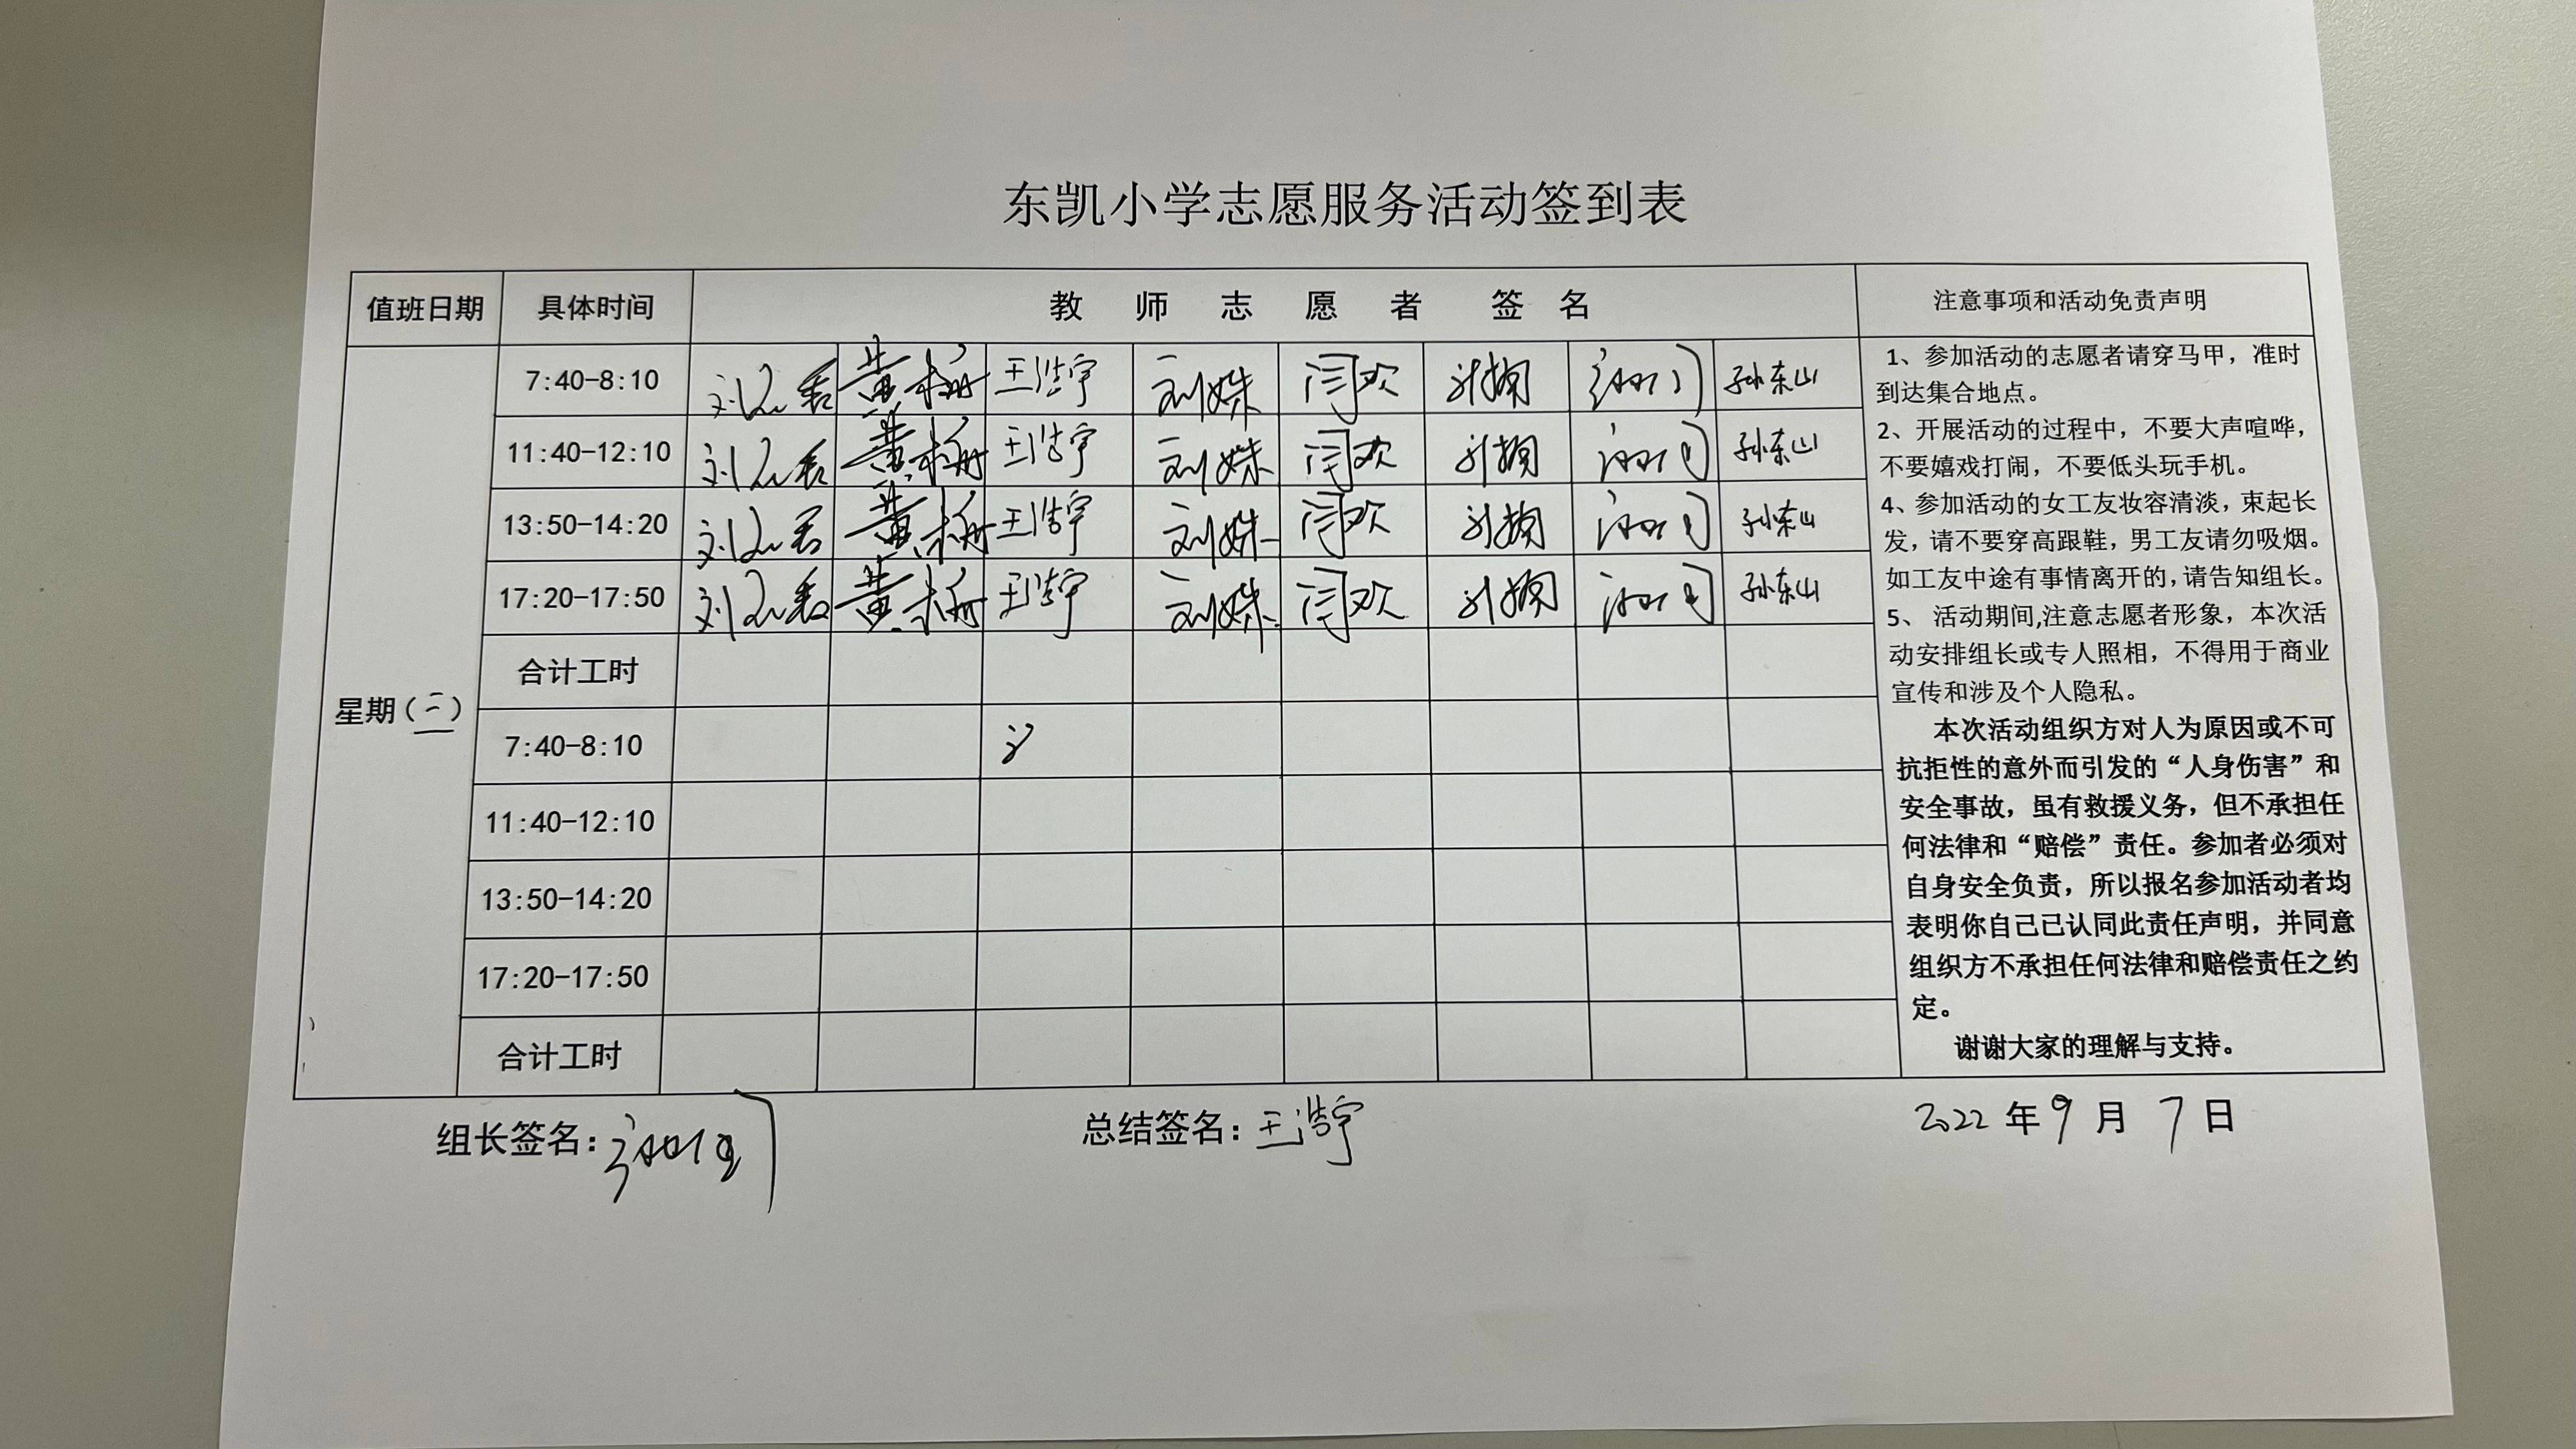 东凯小学志愿服务活动签到表
值班日期 具体时间 教师志愿者 签名 注意事项和活动免责声明
7:40-8:10 黄 王浩宇 刘姝 闫欢 孙东山
11:40-12:10 黄 王浩宇 刘姝 闫欢 孙东山
13:50-14:20 黄 王浩宇 刘姝 闫欢 孙东山
17:20-17:50 黄 王浩宇 刘姝 闫欢 孙东山
合计工时
星期(三)
7:40-8:10
11:40-12:10
13:50-14:20
17:20-17:50
合计工时
1、参加活动的志愿者请穿马甲，准时
到达集合地点。
2、开展活动的过程中，不要大声喧哗，
不要嬉戏打闹，不要低头玩手机。
4、参加活动的女工友妆容清淡，束起长
发，请不要穿高跟鞋，男工友请勿吸烟。
如工友中途有事情离开的，请告知组长。
5、 活动期间,注意志愿者形象，本次活
动安排组长或专人照相，不得用于商业
宣传和涉及个人隐私。
本次活动组织方对人为原因或不可
抗拒性的意外而引发的“人身伤害”和
安全事故，虽有救援义务，但不承担任
何法律和“赔偿”责任。参加者必须对
自身安全负责，所以报名参加活动者均
表明你自己已认同此责任声明，并同意
组织方不承担任何法律和赔偿责任之约
定。
谢谢大家的理解与支持。
组长签名： 总结签名：王浩宇 2022年9月7日